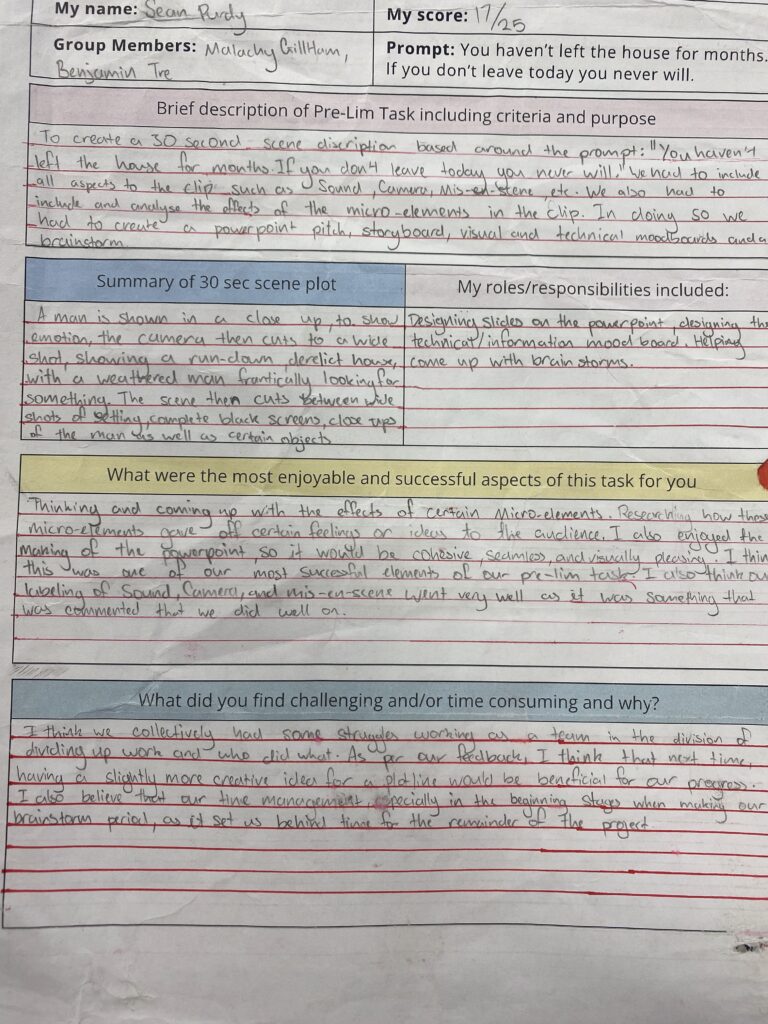 My name: Sean Purdy
My score: 17/25
Group Members: Malachy Gillham,
Benjamin Tre
Prompt: You haven't left the house for months.
If you don't leave today you never will.
Brief description of Pre-Lim Task including criteria and purpose
To create a 30 second scene discription based around the prompt: "You haven't
left the house for months. If you don't leave today you never will." We had to include
all aspects to the clip such as Sound, Camera, Mis-en-stene, etc. We also had to
include and analyse the effects of the micro-elements in the clip. In doing so we
had to create a powerpoint pitch, storyboard, visual and technical moodboards and a
brainstorm
Summary of 30 sec scene plot
A man is shown in a close up, to show
emotion, the camera then cuts to a wide
shot, showing a run-down derelict house,
with a weathered man frantically looking for
something. The scene then cuts between wide
shots of setting, complete black screens, close ups
of the man as well as certain objects
My roles/responsibilities included:
Designing slides on the powerpoint, designing the
technical/information mood board. Helping
come up with brain storms.
What were the most enjoyable and successful aspects of this task for you
Thinking and coming up with the effects of certain Micro-elements. Researching how these
micro-elements gave off certain feelings or ideas to the audience. I also enjoyed the
making of the powerpoint, so it would be cohesive, seamless, and visually pleasing. I thin
this was one of our most successful elements of our pre-lim task. I also think our
labeling of Sound, Camera, and mis-en-scene went very well as it was something that
was commented that we did well on.
What did you find challenging and/or time consuming and why?
I think we collectively had some struggles working as a team in the division of
dividing up work and who did what. As per our feedback, I think that next time,
having a slightly more creative idea for a plotline would be beneficial for our progress.
I also believe that our time management, especially in the beginning stages when making our
brainstorm period, as it set us behind time for the remainder of the project